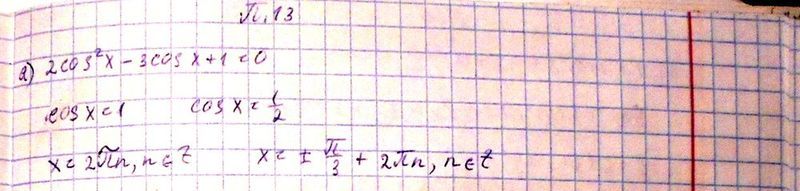 П.13
а) 2cos²x - 3cosx + 1 = 0
cosx = 1 cosx = 1/2
x = 2πn, n ∈ Z x = ± π/3 + 2πn, n ∈ Z